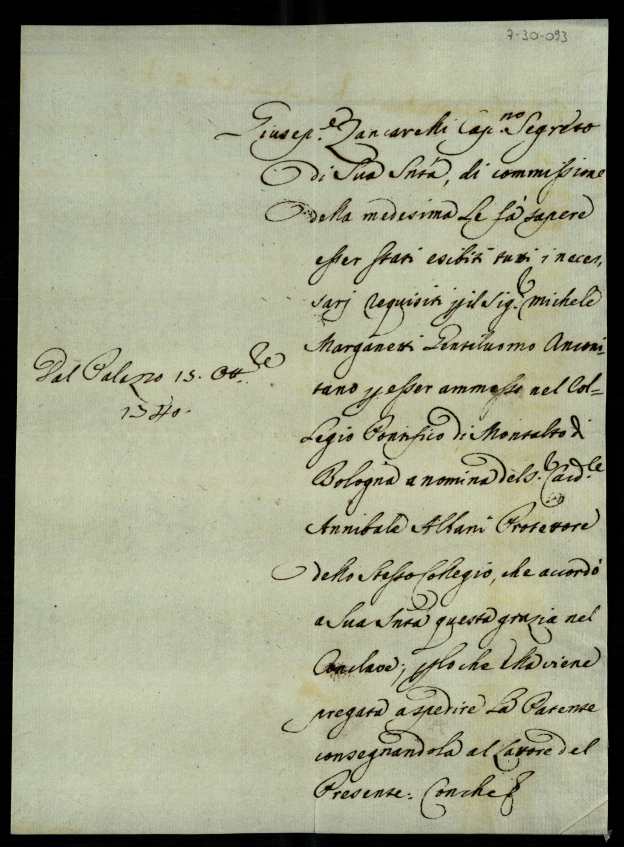 7-30-093
Giusep.e Zancarelli Cap.no Segreto
di Sua Sntà, di commissione
della medesima Le fà sapere
esser stati esibiti tutti i neces,
sarj requisiti p il Sig.r Michele
Marganetti Gentiluomo Anconi-
tano p esser ammesso nel Col=
legio Pontificio di Montalto di
Bologna a nomina del S.r Card.le
Annibale Albani Protettore
dello stesso Collegio, che accordò
a Sua Sntà questa grazia nel
Conclave; p lo che Ella viene
pregata a spedire la Patente
consegnandola al Latore del
Presente. Con che
Dal Palazzo 15. Ott.bre
1740.